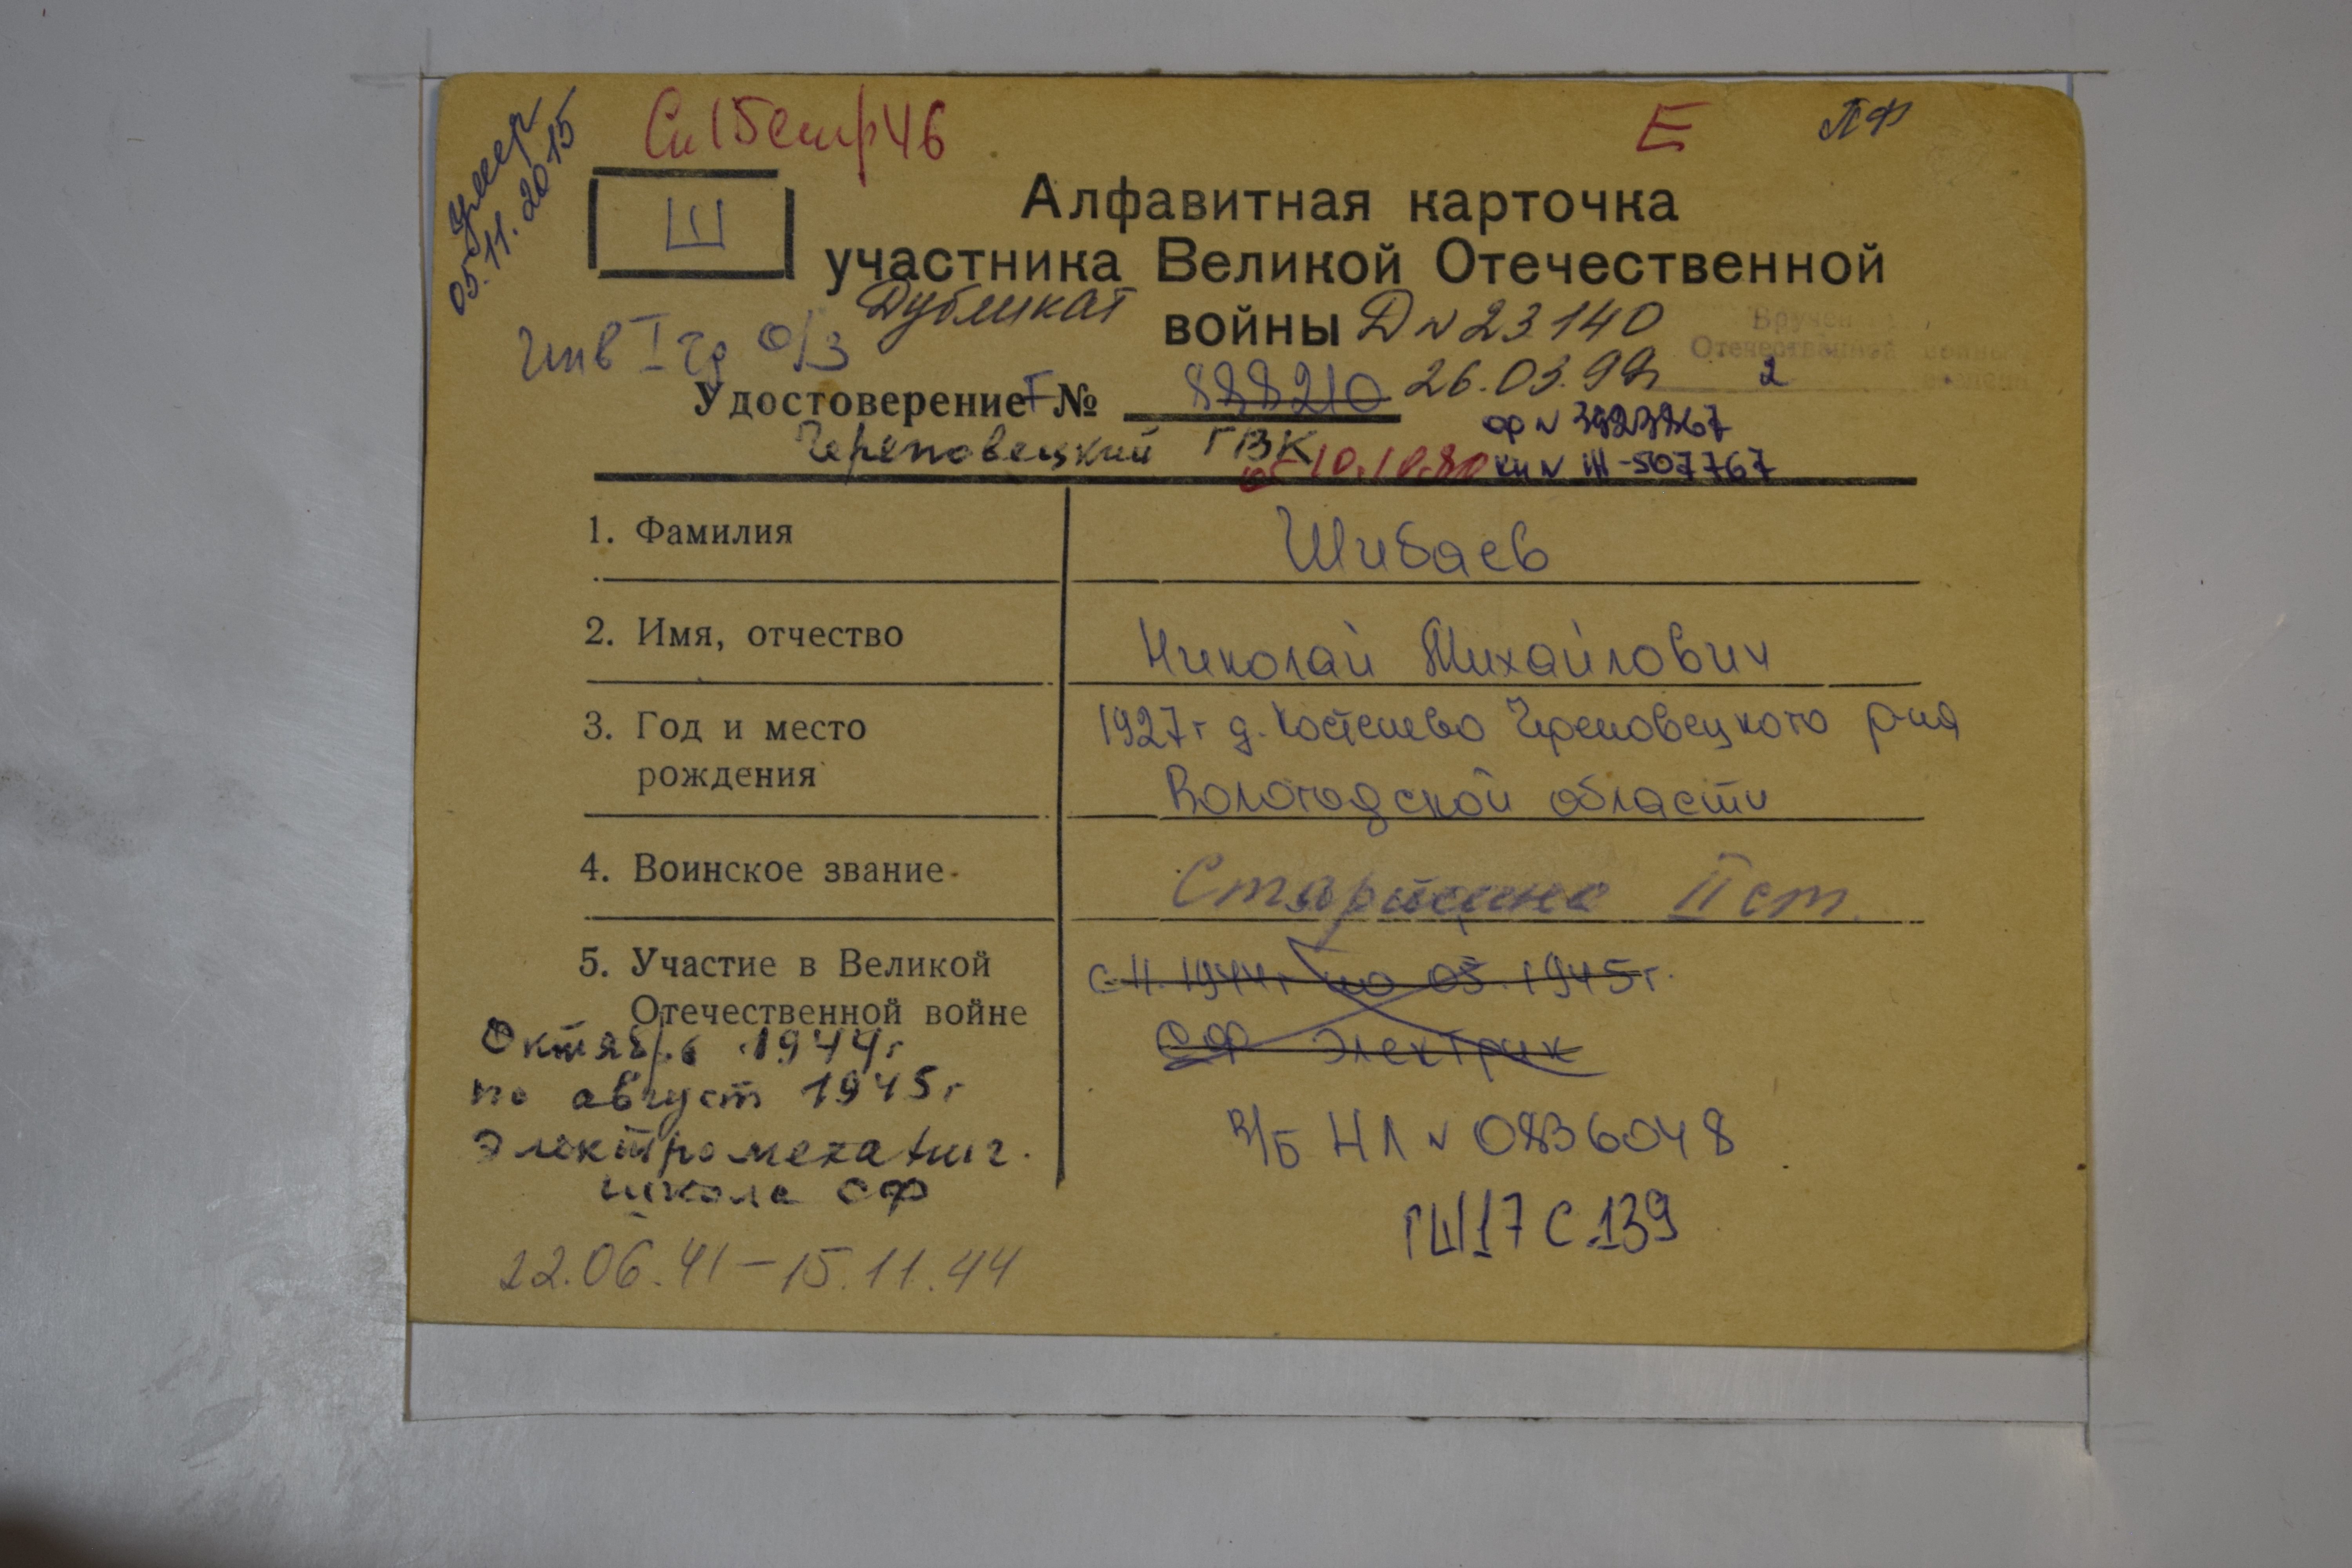 умер
05.11.2015
Сп 15 стр 46
Е
ПФ
Ш
Алфавитная карточка
участника Великой Отечественной
Дубликат
войны Д N 23140
Инв I гр о/з
Вручен
Отечественной войны
2
Удостоверение Г № 888210 26.03.99г
Череповецкий ГВК
от 10.10.80
ор N 3923267
кн N Ш-507767
1. Фамилия Шибаев
2. Имя, отчество Николай Михайлович
3. Год и место 1927г д. Костенево Череповецкого р-на
рождения Вологодской области
4. Воинское звание Старшина II ст.
5. Участие в Великой с 11.1944г по 05.1945г.
Отечественной войне
СФ Электрик
Октябрь 1944г
по август 1945г
Электромеханич.
школа СФ
В/Б НЛ N 0836048
ГШ 17 С 139
22.06.41-15.11.44